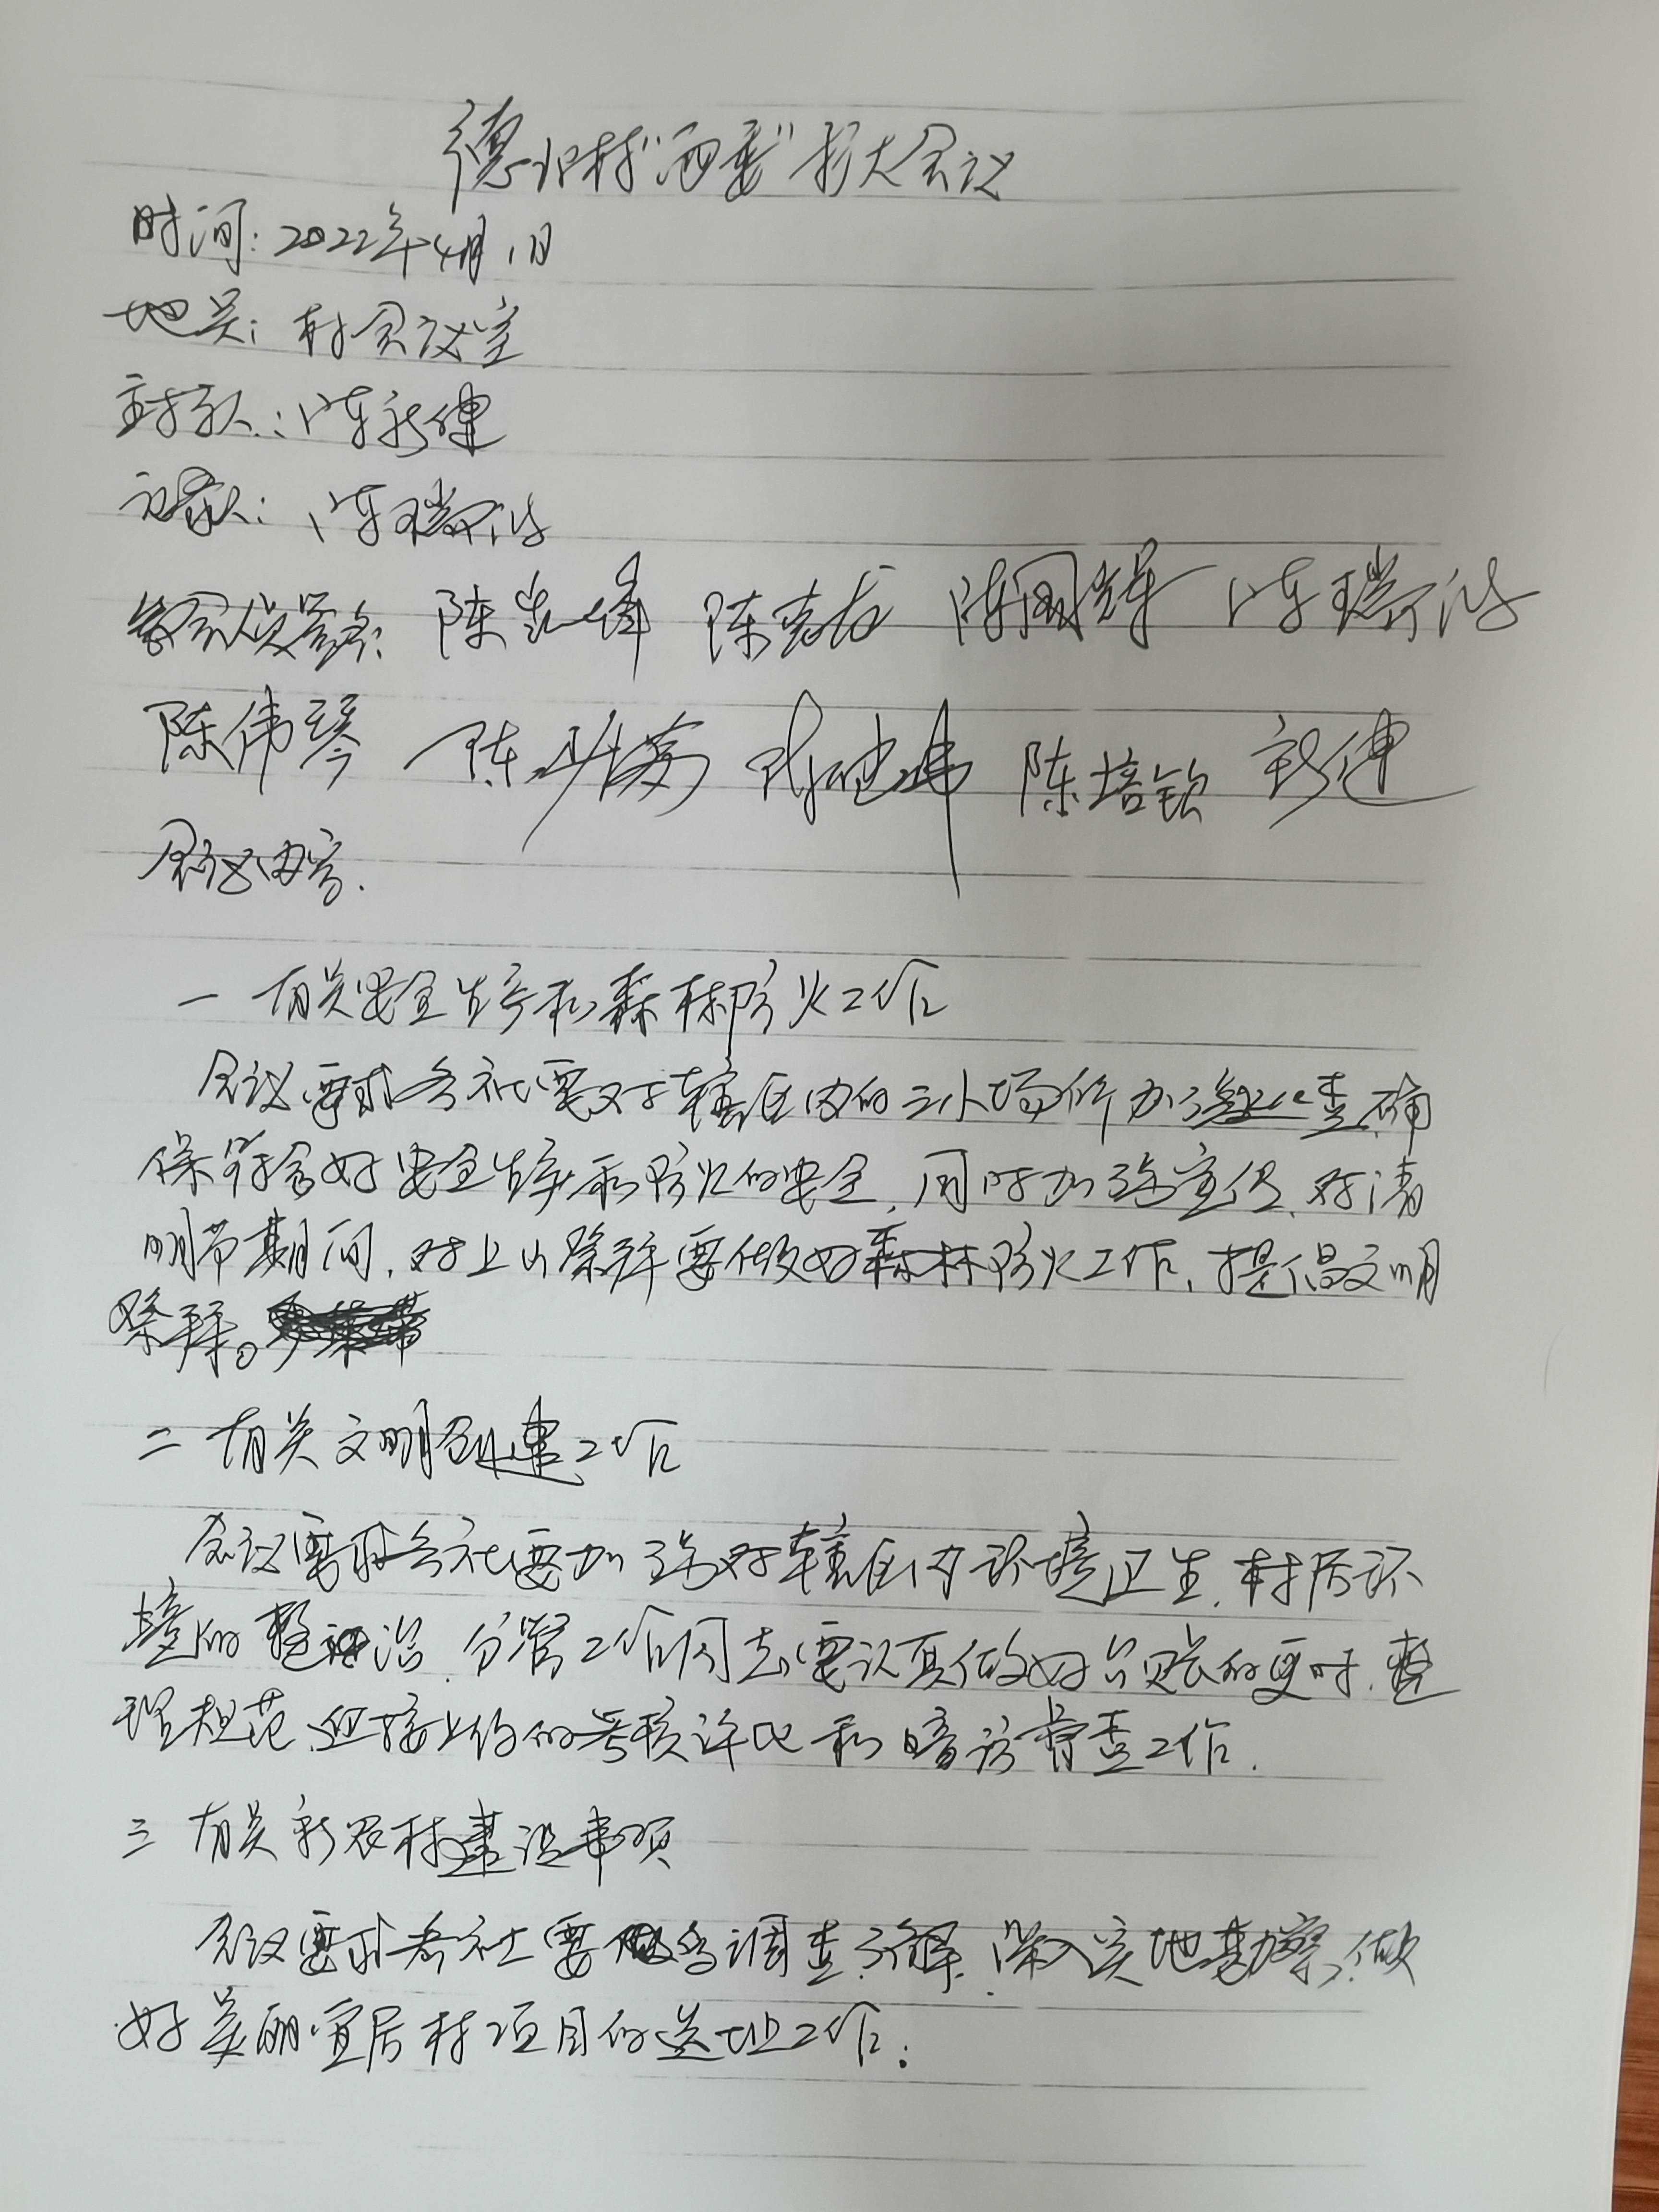 德北村“两委”扩大会议
时间：2022年4月1日
地点：村会议室
主持人：陈新健
记录人：陈瑞洪
参会人员签名：陈 陈志龙 陈国辉 陈瑞洪
陈伟琴 陈 陈培钦 新健
会议内容.
一 有关安全生产和森林防火工作
会议要求各社要对辖区内的三小场所加强检查,确
保符合好安全生产和防火的安全,同时加强宣传,对清
明节期间,对上山祭拜要做好森林防火工作,提倡文明
祭拜。
二 有关文明创建工作
会议要求各社要加强对辖区内环境卫生,村居环
境的整治,分管工作同志要认真做好台账的更时,整
理规范,迎接上级的考核评比和暗访督查工作.
三 有关新农村建设事项
会议要求各社要做好调查了解,深入实地勘察,做
好美丽宜居村项目的选址工作.